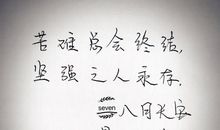 苦难总会终结，
坚强之人永存。
seven
八月长安